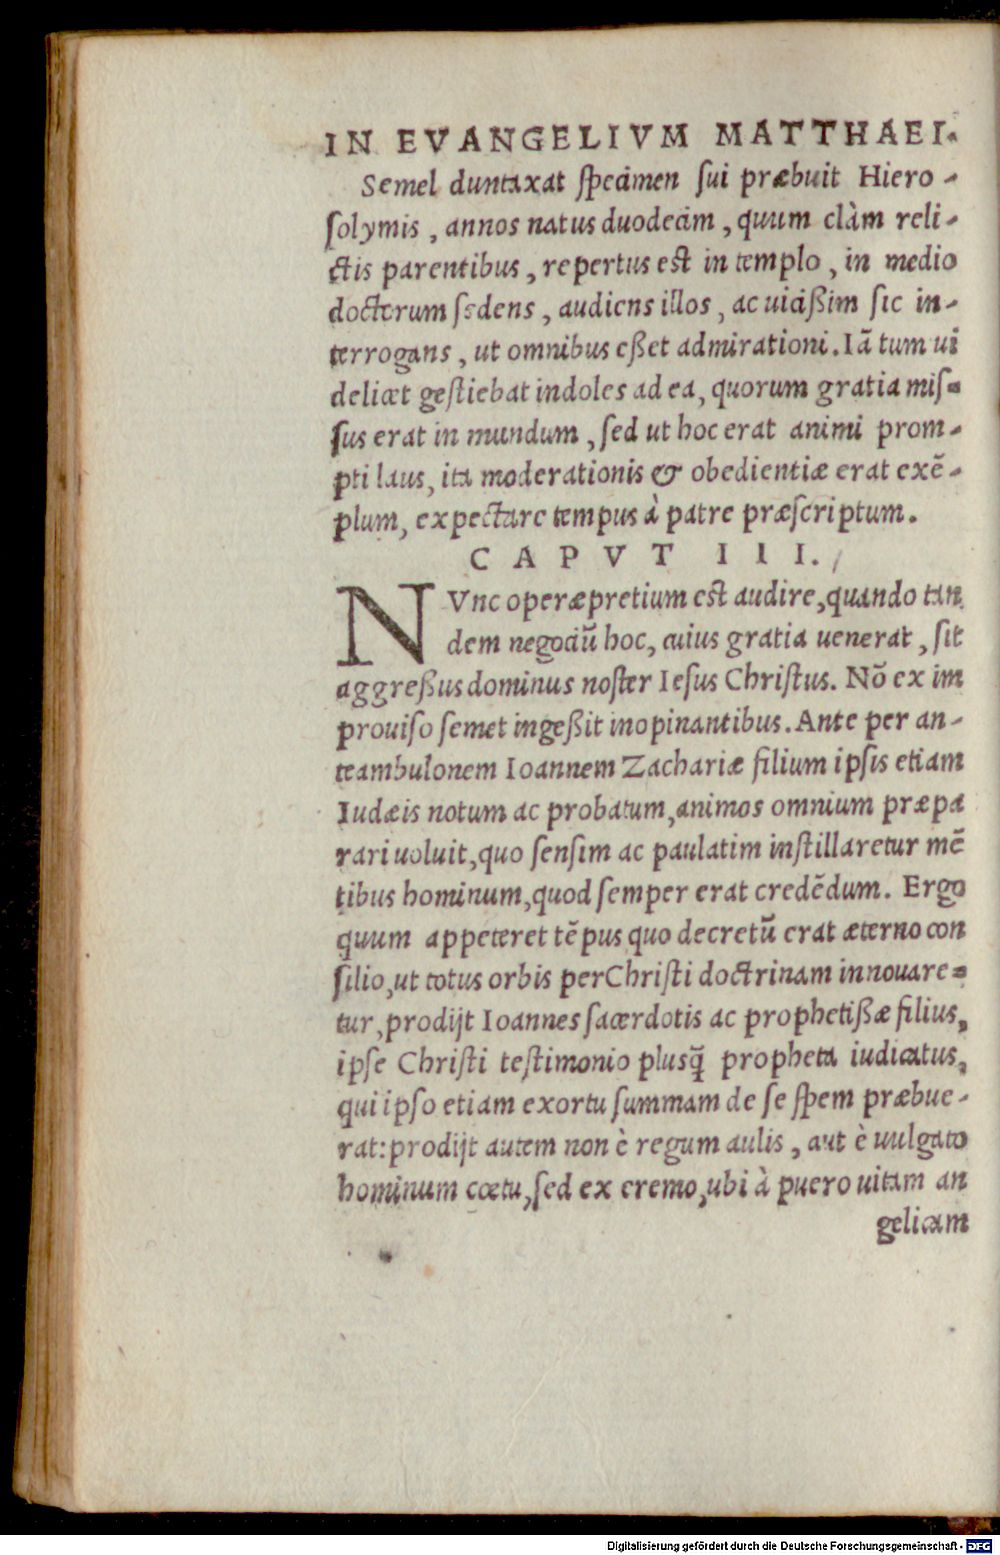 IN EVANGELIVM MATTHAEI.
Semel duntaxat ſpecimen ſui præbuit Hiero-
ſolymis, annos natus duodecim, quum clàm reli-
ctis parentibus, repertus est in templo, in medio
doctorum ſedens, audiens illos, ac uicißim ſic in-
terrogans, ut omnibus eßet admirationi. Iã tum ui
delicet geſtiebat indoles ad ea, quorum gratia miſ-
ſus erat in mundum, ſed ut hoc erat animi prom-
pti laus, ita moderationis & obedientiæ erat exẽ-
plum, expectare tempus à patre præſcriptum.
CAPVT III.
NVnc operæpretium est audire, quando tan
dem negociũ hoc, cuius gratia uenerat, ſit
aggreßus dominus noſter Ieſus Chriſtus. Nõ ex im
prouiſo ſemet ingeßit inopinantibus. Ante per an-
teambulonem Ioannem Zachariæ filium ipſis etiam
Iudæis notum ac probatum, animos omnium præpa
rari uoluit, quo ſenſim ac paulatim inſtillaretur mẽ
tibus hominum, quod ſemper erat credẽdum. Ergo
quum appeteret tẽpus quo decretũ erat æterno con
ſilio, ut totus orbis per Chriſti doctrinam innouare-
tur, prodijt Ioannes ſacerdotis ac prophetißæ filius,
ipſe Chriſti teſtimonio plusq̃ propheta iudicatus,
qui ipſo etiam exortu ſummam de ſe ſpem præbue-
rat: prodijt autem non è regum aulis, aut è uulgato
hominum cœtu, ſed ex eremo, ubi à puero uitam an
gelicam
Digitalisierung gefördert durch die Deutsche Forschungsgemeinschaft - DFG